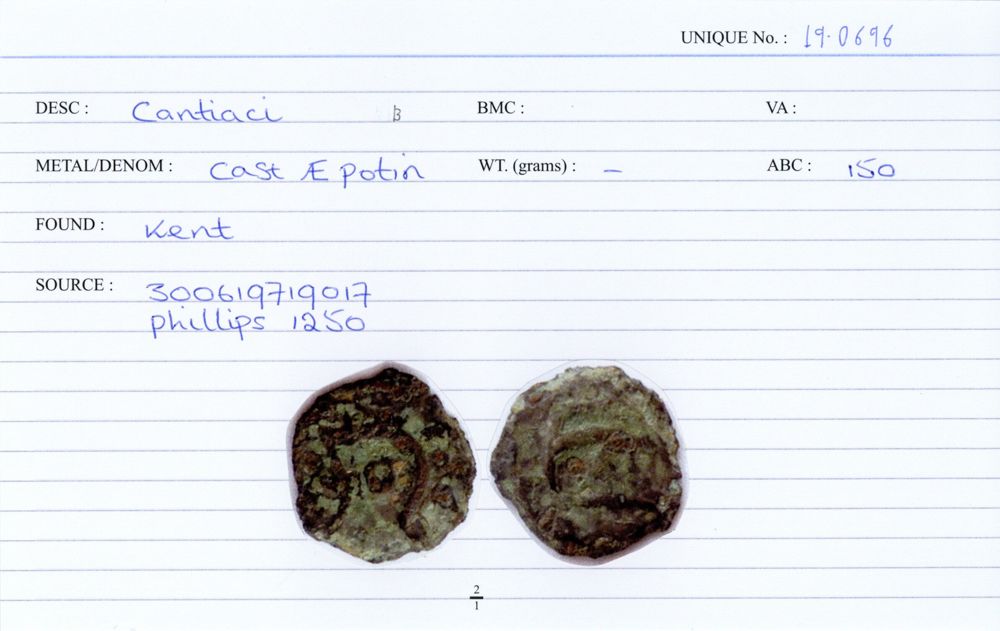 UNIQUE No. : 19.0696
DESC : Cantiaci B BMC : VA :
METAL/DENOM : Cast Æ potin WT. (grams) : – ABC : 150
FOUND : Kent
SOURCE : 300619719017
phillips 1250
2
1